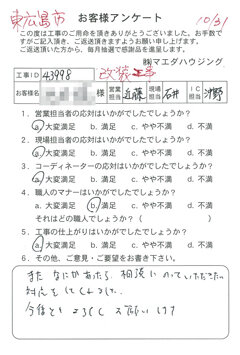 東広島市 お客様アンケート 10/31
この度は工事のご用命を頂きありがとうございました。お手数で
すがご記入頂き、ご返送頂きますようお願い申し上げます。
ご返送頂いた方から、毎月抽選で感謝品を進呈します。
㈱マエダハウジング
工事ID 43998 改装工事
お客様名 様 営業担当 近藤 現場担当 石井 IC担当 沖野
1. 営業担当者の応対はいかがでしたでしょうか?
a.大変満足 b.満足 c.やや不満 d.不満
2. 現場担当者の応対はいかがでしたでしょうか?
a.大変満足 b.満足 c.やや不満 d.不満
3. コーディネーターの応対はいかがでしたでしょうか?
a.大変満足 b.満足 c.やや不満 d.不満
4. 職人のマナーはいかがでしたでしょうか?
a.大変満足 b.満足 c.やや不満 d.不満
それはどの職人でしょうか?( )
5. 工事の仕上がりはいかがでしたでしょうか?
a.大変満足 b.満足 c.やや不満 d.不満
6. その他、ご意見・ご要望をお書き下さい。
また なにかあったら 相談にのっていただきたい
対応をしてくれました。
今後とも よろしく お願いします